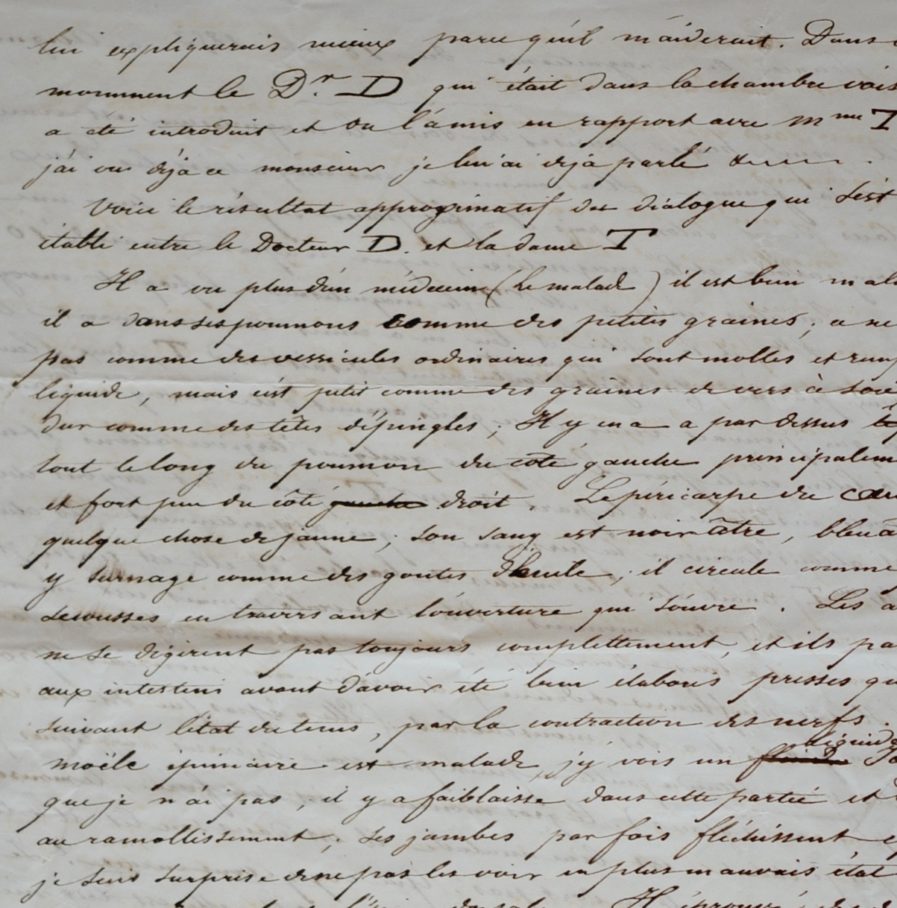 lui expliquerais mieux parce qu'il m'aiderait. Dans
momment le Dr. D qui était dans la chambre vois
a été introduit et on l'a mis en rapport avec Mme T
j'ai vu déja ce monsieur je lui ai déja parlé
Voici le résultat approximatif du dialogue qui s'est
établi entre le Docteur D. et la dame T
Il a vu plus d'un médecin (le malade) il est bien mal
il a dans ses poumons comme des petites graines; ce ne
pas comme des vessicules ordinaires qui sont molles et remp
liquide, mais c'est petit comme des graines de vers à soie
dur comme des têtes d'épingles; Il y en a a par dessus
tout le long du poumon du coté gauche principalem
et fort peu du côté gauche droit. Le péricarpe du cœu
quelque chose de jaune; son sang est noirâtre, bleuâ
y surnage comme des goutes d'huile; il circule comme
secousses en traversant l'ouverture qui s'ouvre. Les a
ne se digèrent pas toujours complettement, et ils pa
aux intestins avant d'avoir été bien élaborés presses qu
suivant l'état du tems, par la contraction des nerfs.
moële épiniaire est malade, j'y vois un fluide liquide
que je n'ai pas, il y a faiblaisse dans cette partie et
au ramollissement; ses jambes par fois fléchissent e
je suis surprise de ne pas les voir en plus mauvais état
Il éprouve des